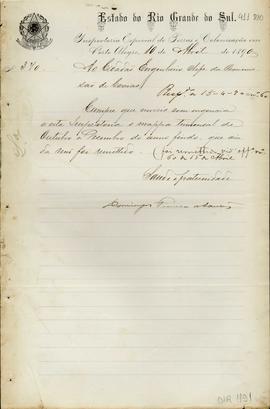 Estado do Rio Grande do Sul.
Inspectoria Especial de Terras e Colonisação em
Porto Alegre, 16 de Abril de 1890
Nº 370
Ao Cidadão Engenheiro Chefe da Commis-
são de
Resp. a 15-4-90 60
Cumpre que envieis com urgencia
a esta Inspectoria o mappa trimensal de
Outubro a Dezembro do anno findo, que ain-
da não foi remettido. (foi remettido vid. off. nº
60 de 15 de Abril
Saude e fraternidade
DIR 491